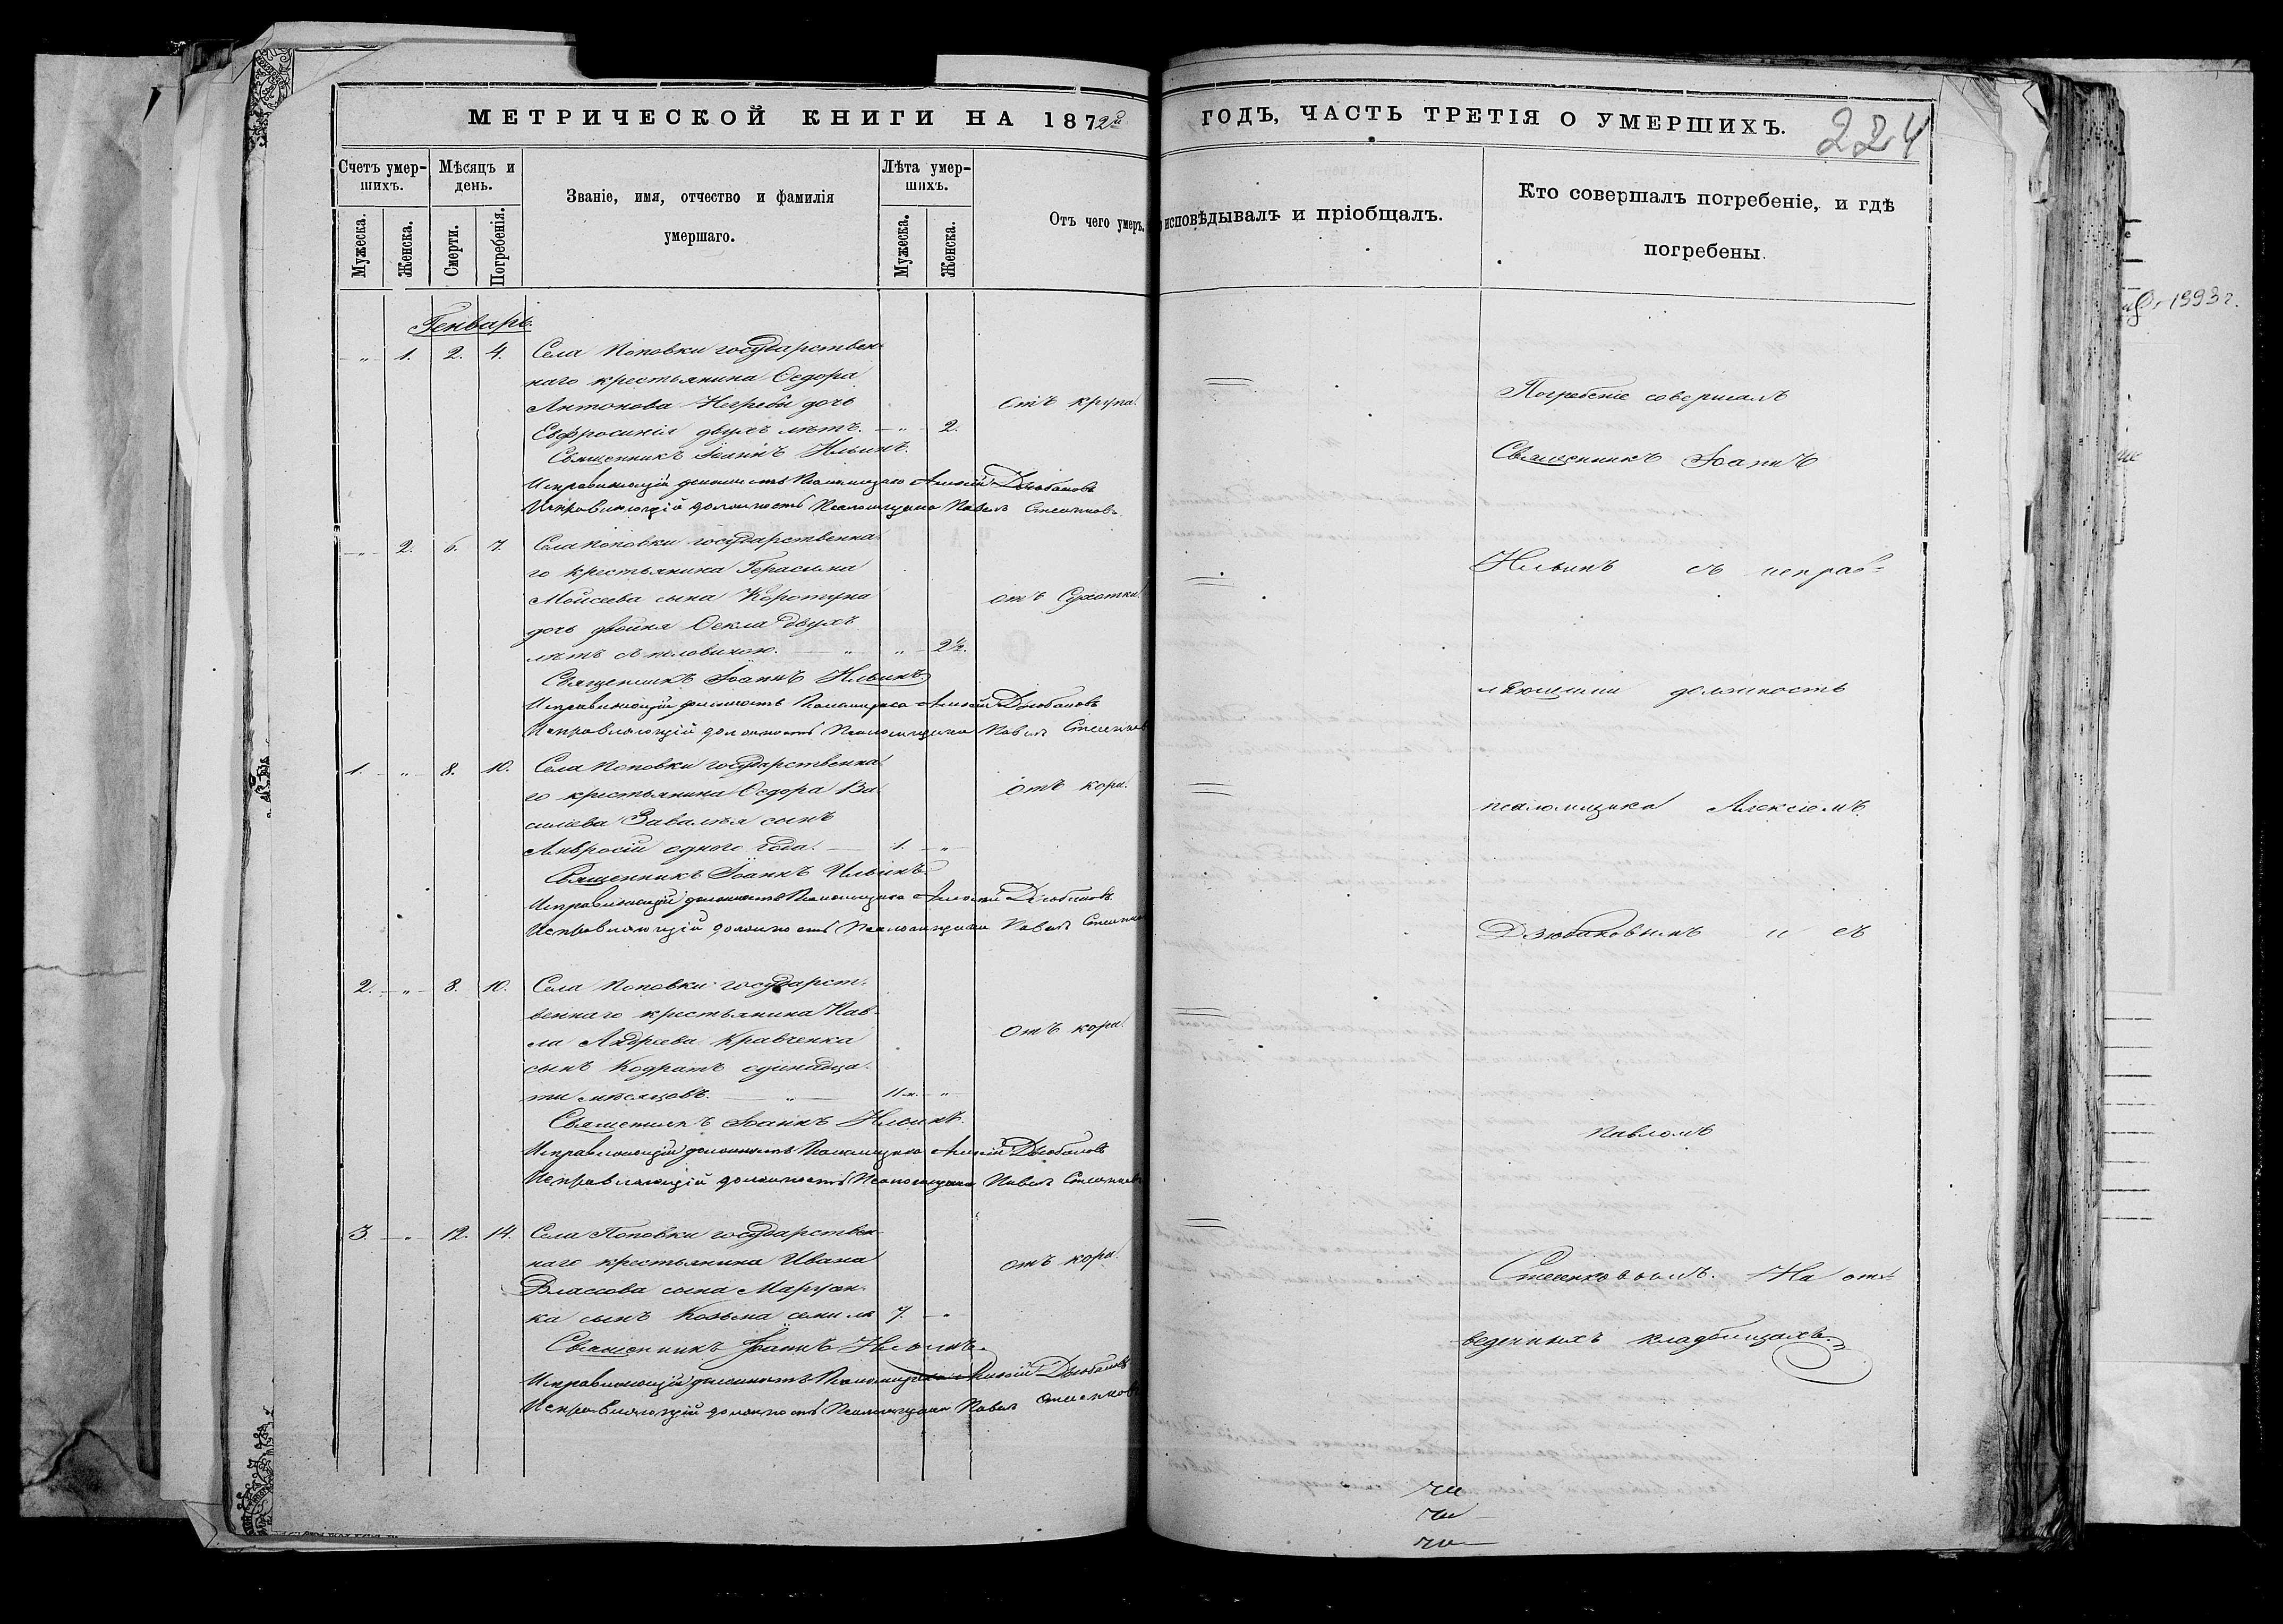 МЕТРИЧЕСКОЙ КНИГИ НА 1872й
Счетъ умершихъ.
Мѣсяцъ и день.
Званіе, имя, отчество и фамилія умершаго.
Лѣта умершихъ.
Отъ чего умеръ.
Мужеска.
Женска.
Смерти.
Погребенія.
Мужеска.
Женска.
Генварь.
„ 1. 2. 4. Села Поповки государствен-
наго крестьянина Ѳедора
Антонова Негребы дочь отъ крупа.
Евфросинія двухъ лѣтъ. „ 2.
Священникъ Іоаннъ Ильинъ.
Исправляющій должность Псаломщика Алексій Дзюбановъ
Исправляющій должность Псаломщика Павелъ
„ 2. 6. 7. Села Поповки государственна
го крестьянина Герасима
Мойсеева сына Коротуна отъ Сухотки.
дочь двойня Ѳекла двухъ
лѣтъ съ половиною. „ „ 2½.
Священникъ Іоаннъ Ильинъ.
Исправляющій должность Псаломщика Алексій Дзюбановъ
Исправляющій должность Псаломщика Павелъ
1. „ 8. 10. Села Поповки государственна
го крестьянина Ѳедора Ва отъ кори.
силіева сынъ
Амвросій одного года. 1. „
Священникъ Іоаннъ Ильинъ.
Исправляющій должность Псаломщика Алексій Дзюбановъ
Исправляющій должность Псаломщика Павелъ
2. „ 8. 10. Села Поповки государст-
веннаго крестьянина Пав-
ла Андреева Кравченка отъ кори.
сынъ Кодратъ одинадца-
ти мѣсяцовъ. „ 11 м. „
Священникъ Іоаннъ Ильинъ.
Исправляющій должность Псаломщика Алексій Дзюбановъ
Исправляющій должность Псаломщика Павелъ
3. „ 12. 14. Села Поповки государствен-
наго крестьянина Ивана отъ кори.
Власова сына
ка сынъ Козьма семи лѣ 7. „
Священникъ Іоаннъ Ильинъ.
Исправляющій должность Псаломщика Алексій Дзюбановъ
Исправляющій должность Псаломщика Павелъ
ГОДЪ, ЧАСТЬ ТРЕТІЯ О УМЕРШИХЪ.
224
исповѣдывалъ и пріобщалъ.
Кто совершалъ погребеніе, и гдѣ погребены.
Погребеніе совершалъ
Священникъ Іоаннъ
Ильинъ съ исправ-
ляющими должность
псаломщика Алексіемъ
Дзюбановымъ и съ
Павломъ
На от-
веденныхъ кладбищахъ.
1993 г.